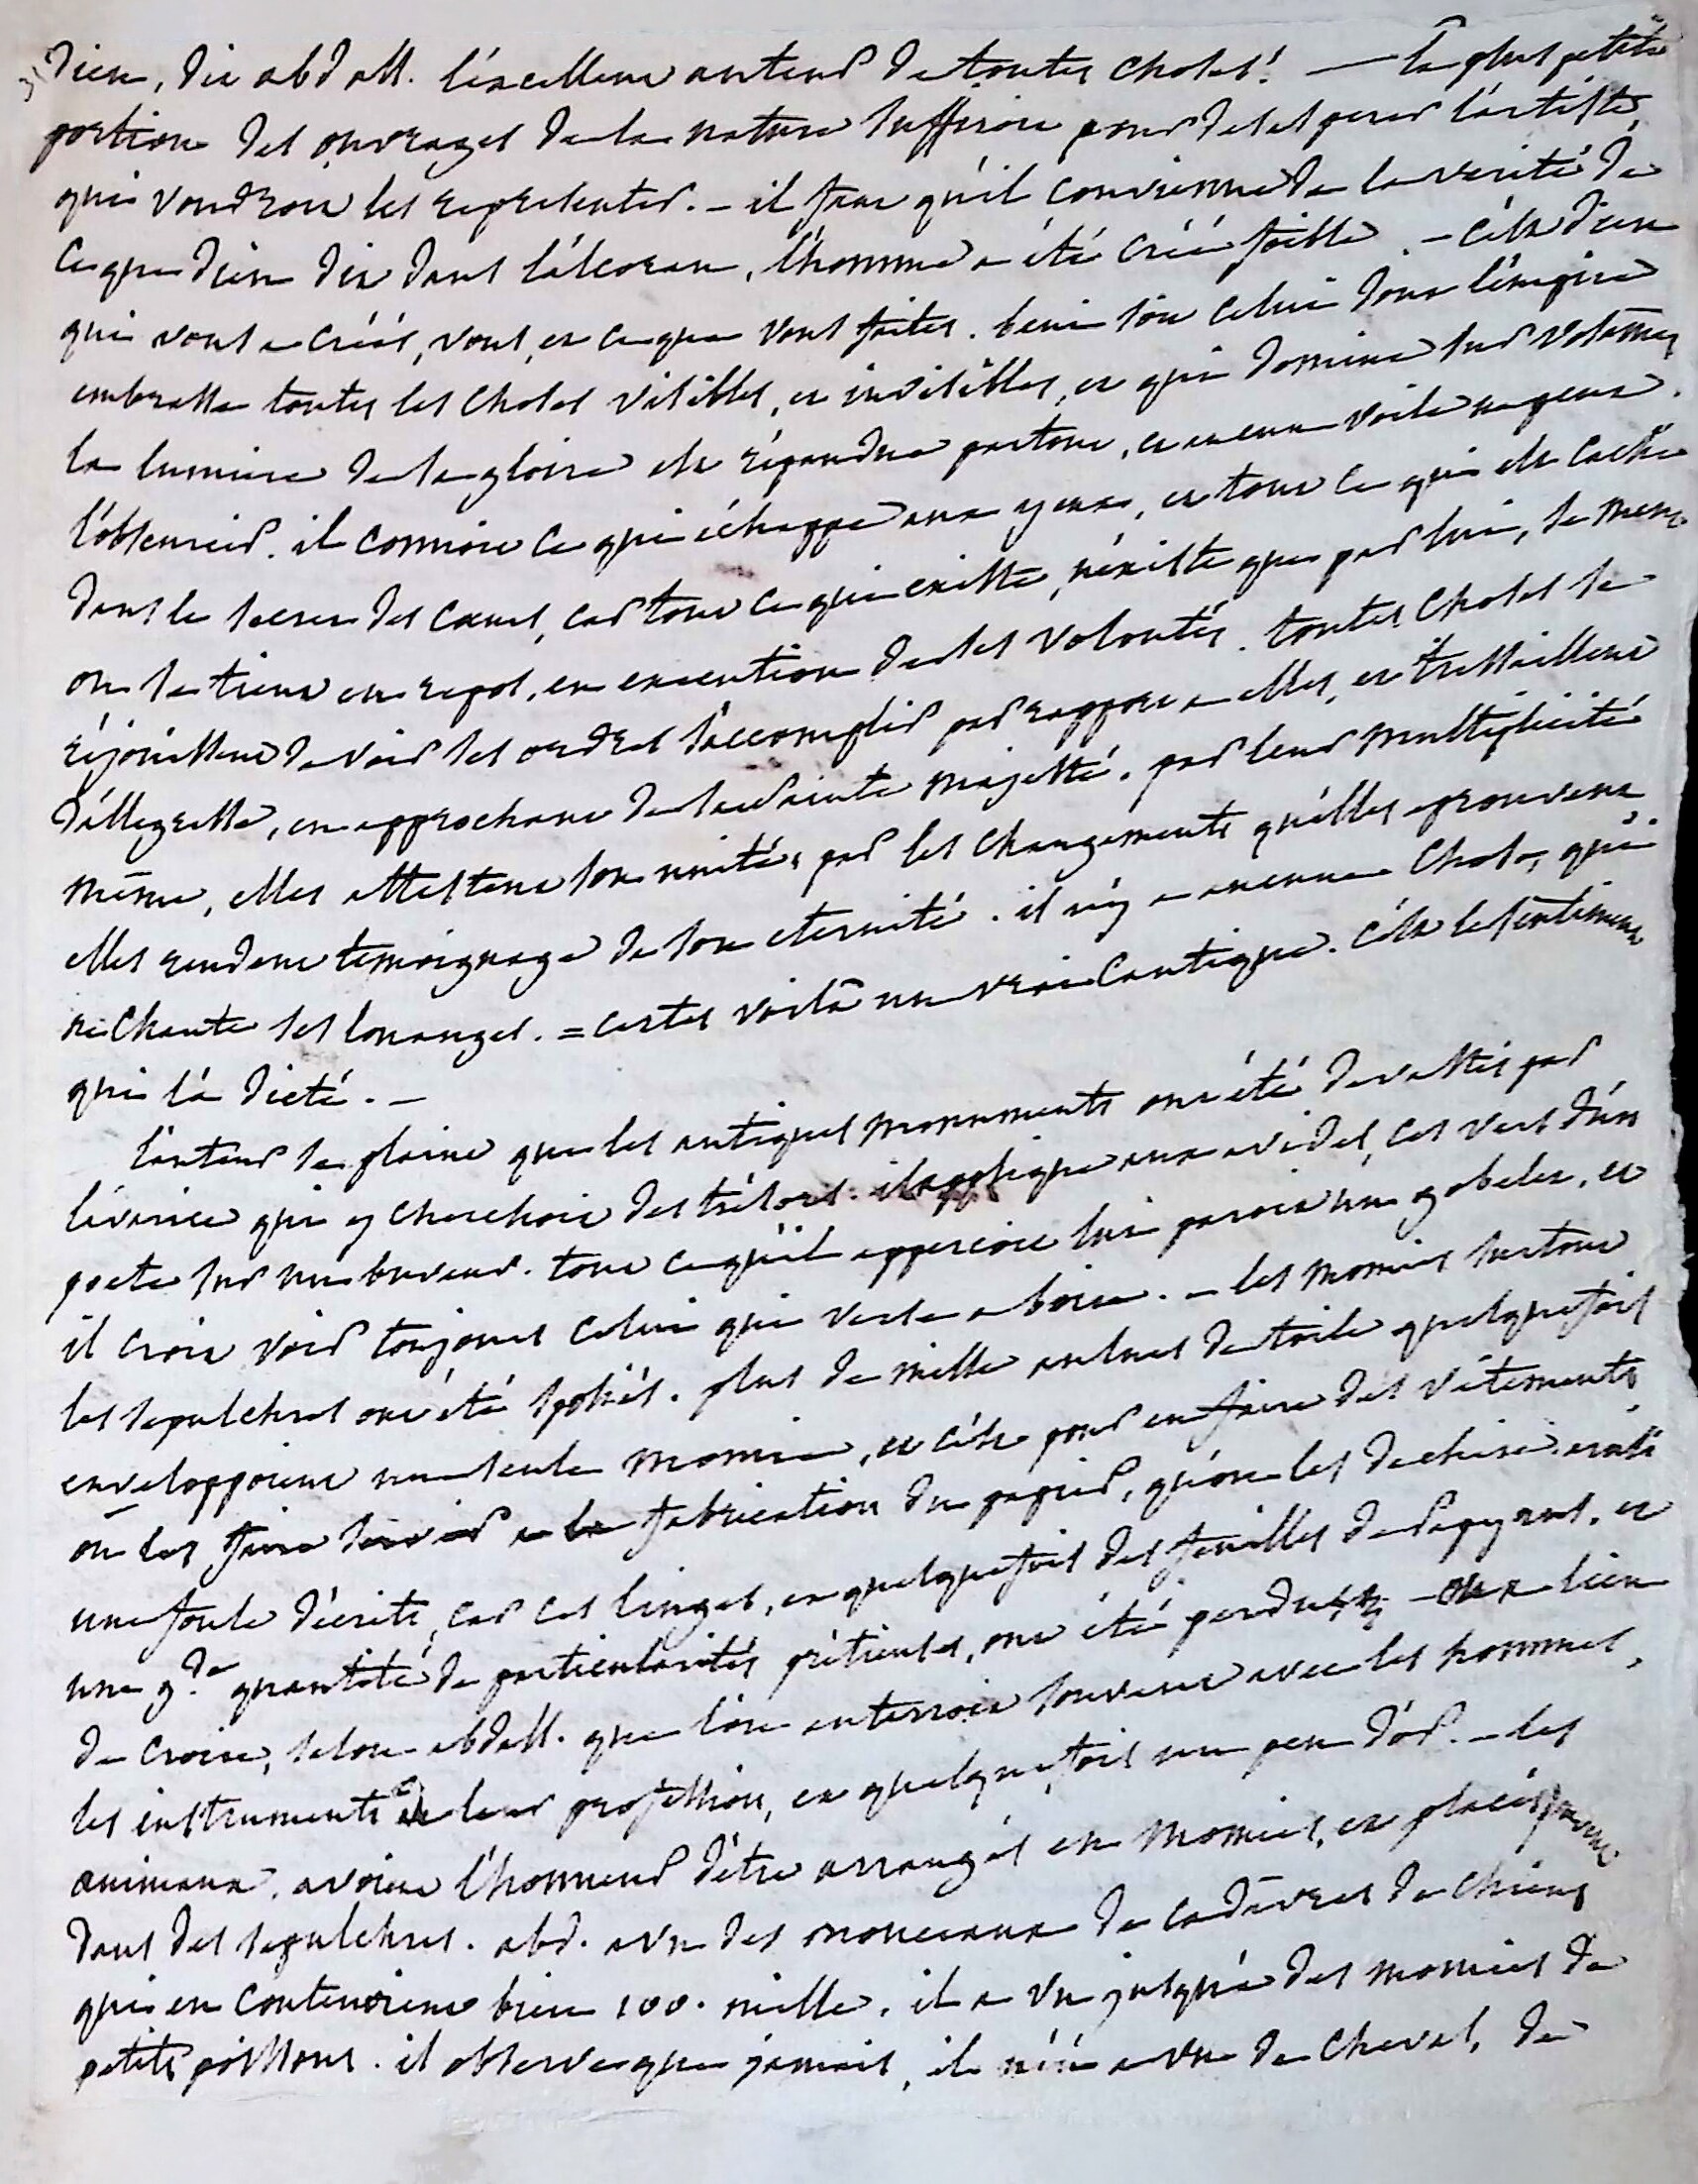 Dieu, dit abdall. l'excellent auteur de toutes choses! — la plus petite
portion des ouvrages de la nature suffiroit pour desesperer l'artiste,
qui voudroit les representer. – il faut qu'il convienne de la verité de
ce que dieu dit dans l'alcoran, l'homme a été créé foible. – c'est dieu
qui vous a créés, vous, et ce que vous faites. beni soit celui dont l'empire
embrasse toutes les choses visibles, et invisibles, et qui domine sur
la lumiere de sa gloire est répandue partout, et aucun voile ne peut
l'obscurcir. il connoit ce qui échappe aux yeux, et tout ce qui est caché
dans le secret des cœurs, car tout ce qui existe, n'existe que par lui, se meut
ou se tient en repos, en execution de ses volontés. toutes choses se
réjouissent de voir ses ordres s'accomplir par rapport a elles, et tressaillent
d'allegresse, en approchant de sa sainte majesté. par leur multiplicité
même, elles attestent son unité, par les changements qu'elles eprouvent
elles rendent temoignage de son eternité. il n'y a aucune chose, qui
ne chante ses louanges. = certes voilà un vrai cantique. c'est le sentiment
qui l'a dicté. –
l'auteur se plaint que les antiques monuments ont été devastés par
l'avarice qui y cherchoit des trésors. il applique aux avides, ces vers d'un
poete sur un buveur. tout ce qu'il apperçoit lui paroit un gobelet, et
il croit voir toujours celui qui verse a boire. – les momies surtout
les sepulchres ont été spoliés. plus de mille aulnes de toile quelquefois
enveloppoient une seule momie, et c'est pour en faire des vêtements
ou les faire servir a la fabrication du papier, qu'on les dechire.
une foule d'écrits, car ces linges, et quelquefois des feuilles de papyrus, et
une gde quantité de particularités prétieuses, ont été perdus – on a lieu
de croire, selon abdall. que l'on enterroit souvent avec les hommes,
les instruments de leur profession, et quelquefois un peu d'or. – les
animaux, avoient l'honneur d'être arrangés en momies, et placés
dans des sepulchres. abd. a vu des monceaux de cadavres de chiens
qui en contenoient bien 100. mille. il a vu jusqu'a des momies de
petits poissons. il observe que jamais, il n'en a vu de cheval, de